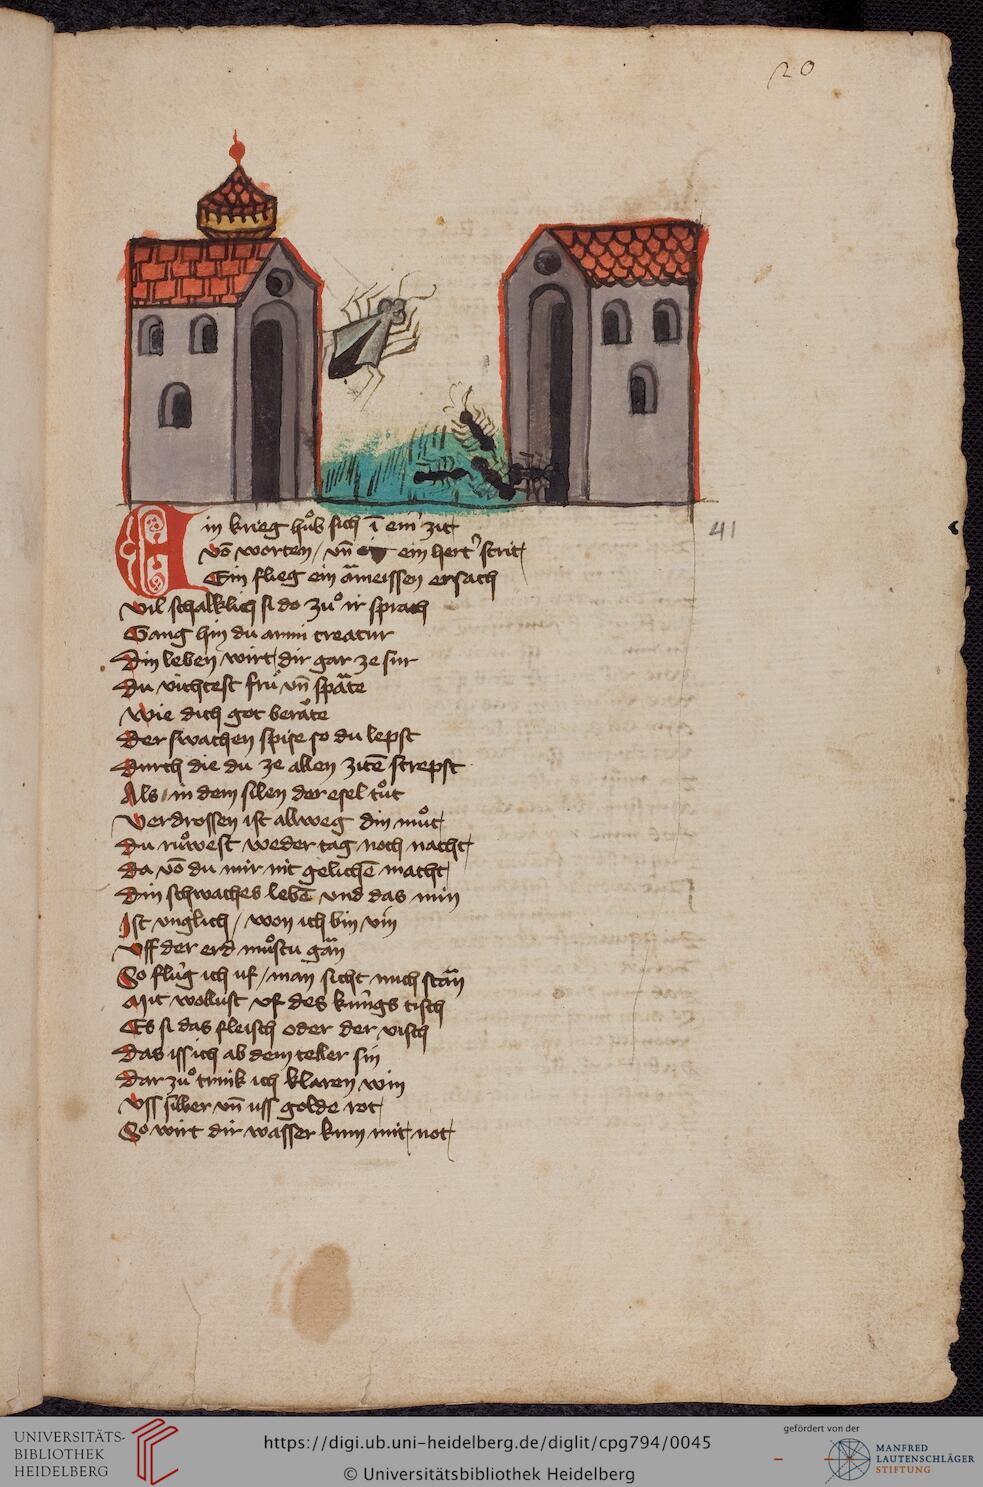 20
Ein krieg hůb sich ī eim̄ zit
vō worten / vn̄ ein hert' strit
Ein flieg ein ameissen ersach
vil schalklich si do zuͦ ir sprach
Gang hin du armi creatur
Din leben wirt dir gar ze sur
Du vichtest fruͤ vn̄ spaͤte
wie dich got beraͤte
Der swachen spise so du lepst
Durch die du ze allen zitē strepst
Als in dem silen der esel tuͦt
Verdrossen ist allweg din muͦt
Du ruͦwest weder tag noch nacht
da vō du mir nit gelichē macht
din schwaches lebē vnd das min
Ist vnglich / won ich bin vin
Vff der erd muͦstu gān
So flüg ich uf / man sicht mich stān
Mit wollust vf des küngs tisch
Es si das fleisch oder der visch
Das iss ich ab dem teller sin
Dar zuͦ trink ich klaren win
Vss silber vn̄ uss golde rot
So wirt dir wasser kum mit not
41
UNIVERSITÄTS-
BIBLIOTHEK
HEIDELBERG
https://digi.ub.uni-heidelberg.de/diglit/cpg794/0045
© Universitätsbibliothek Heidelberg
gefördert von der
MANFRED
LAUTENSCHLÄGER
STIFTUNG